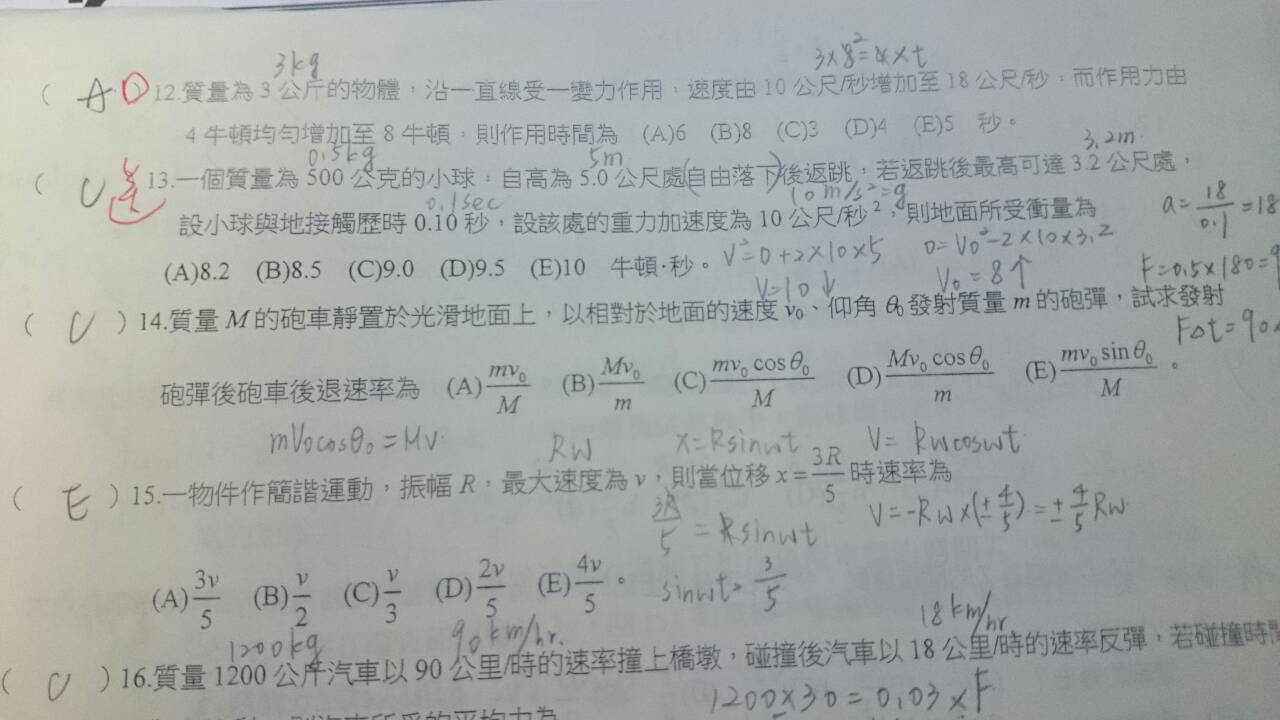 3kg
3×8²=4×t
( A D )12.質量為 3 公斤的物體，沿一直線受一變力作用，速度由 10 公尺/秒增加至 18 公尺/秒，而作用力由
4 牛頓均勻增加至 8 牛頓，則作用時間為 (A)6 (B)8 (C)3 (D)4 (E)5 秒。
0.5kg 5m 3,2m
( C 送 )13.一個質量為 500 公克的小球，自高為 5.0 公尺處(自由落下)後返跳，若返跳後最高可達 3.2 公尺處，
0.1sec 10m/s²=g
設小球與地接觸歷時 0.10 秒，設該處的重力加速度為 10 公尺/秒²，則地面所受衝量為
a=18/0.1=18
(A)8.2 (B)8.5 (C)9.0 (D)9.5 (E)10 牛頓·秒。
V²=0+2×10×5 0=V₀²-2×10×3.2
V=10↓ V₀=8↑
F=0.5×180=9
( C )14.質量 M 的砲車靜置於光滑地面上，以相對於地面的速度 v₀、仰角 θ₀ 發射質量 m 的砲彈，試求發射
F△t=90×
砲彈後砲車後退速率為 (A) mv₀/M (B) Mv₀/m (C) mv₀cosθ₀/M (D) Mv₀cosθ₀/m (E) mv₀sinθ₀/M 。
mV₀cosθ₀=MV RW x=Rsinwt V=Rwcoswt
( E )15.一物件作簡諧運動，振幅 R，最大速度為 v，則當位移 x=3R/5 時速率為
3R/5=Rsinwt V=-Rw×(±4/5)=±4/5Rw
(A) 3v/5 (B) v/2 (C) v/3 (D) 2v/5 (E) 4v/5 。
sinwt=3/5
1200kg 90km/hr. 18km/hr
( C )16.質量 1200 公斤汽車以 90 公里/時的速率撞上橋墩，碰撞後汽車以 18 公里/時的速率反彈，若碰撞時間
1200×30=0.03×F